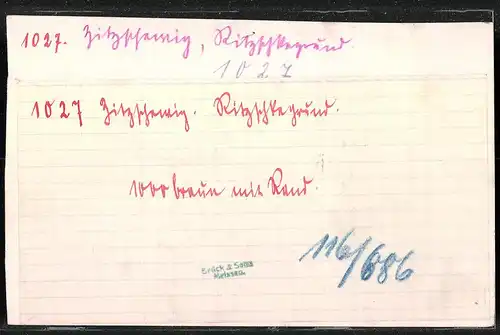 1027. Zitzschewig, Ritzschkegrund.
1027
1027 Zitzschewig. Ritzschkegrund.
1000 braun mit Rand.
116/686
Brück & Sohn
Meissen